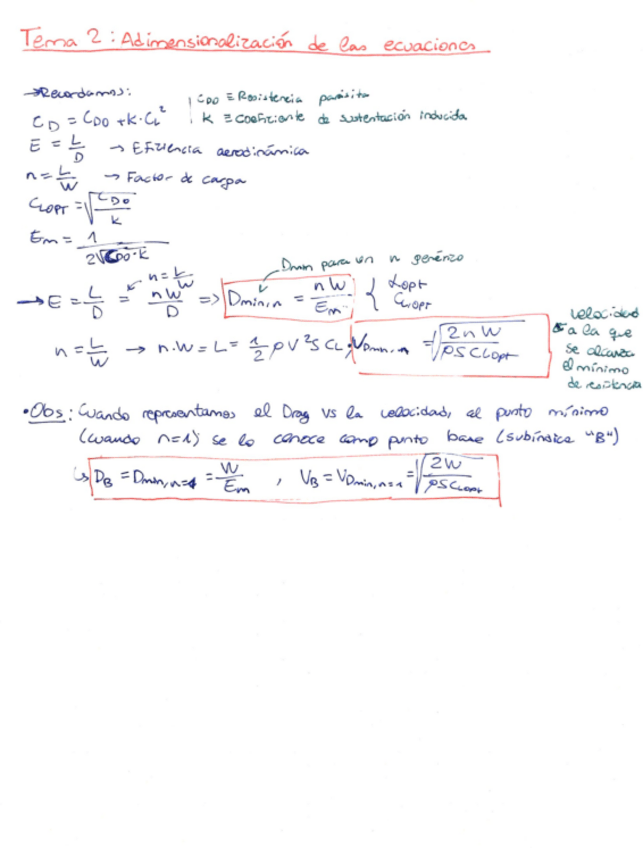 Tema 2: Adimensionalización de las ecuaciones
→ Recordamos:
C_D = C_D0 + K·C_L² | C_D0 ≡ Resistencia parásita
K ≡ Coeficiente de sustentación inducida
E = L/D → Eficiencia aerodinámica
n = L/W → Factor de carga
C_LOPT = √(C_D0/k)
E_m = 1/(2√(C_D0·k))
Dmin para un n genérico
n = L/W
→ E = L/D = nW/D => D_min,n = nW/E_m { α_opt C_Lopt
n = L/W → n·W = L = 1/2 ρV²S CL, V_Dmin,n = √(2nW/(ρS C_Lopt))
velocidad a la que se alcanza el mínimo de resistencia
• Obs: Cuando representamos el Drag vs la velocidad, al punto mínimo
(cuando n=1) se lo conoce como punto base (subíndice "B")
↳ D_B = D_min,n=1 = W/E_m , V_B = V_Dmin,n=1 = √(2W/(ρS C_Lopt))